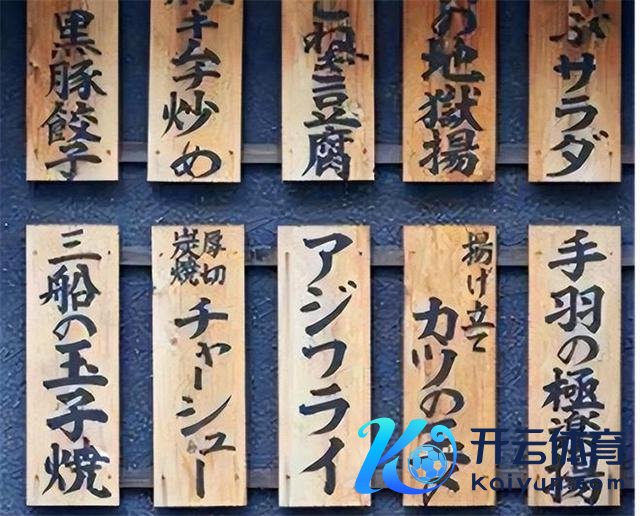 ぶサラダ
の地獄揚
豆腐
キムチ炒め
黒豚餃子
手羽の極楽揚
揚げ立て
カツの
アジフライ
厚切
炭焼
チャーシュー
三船の玉子焼
开云体育
Kaiyun.com